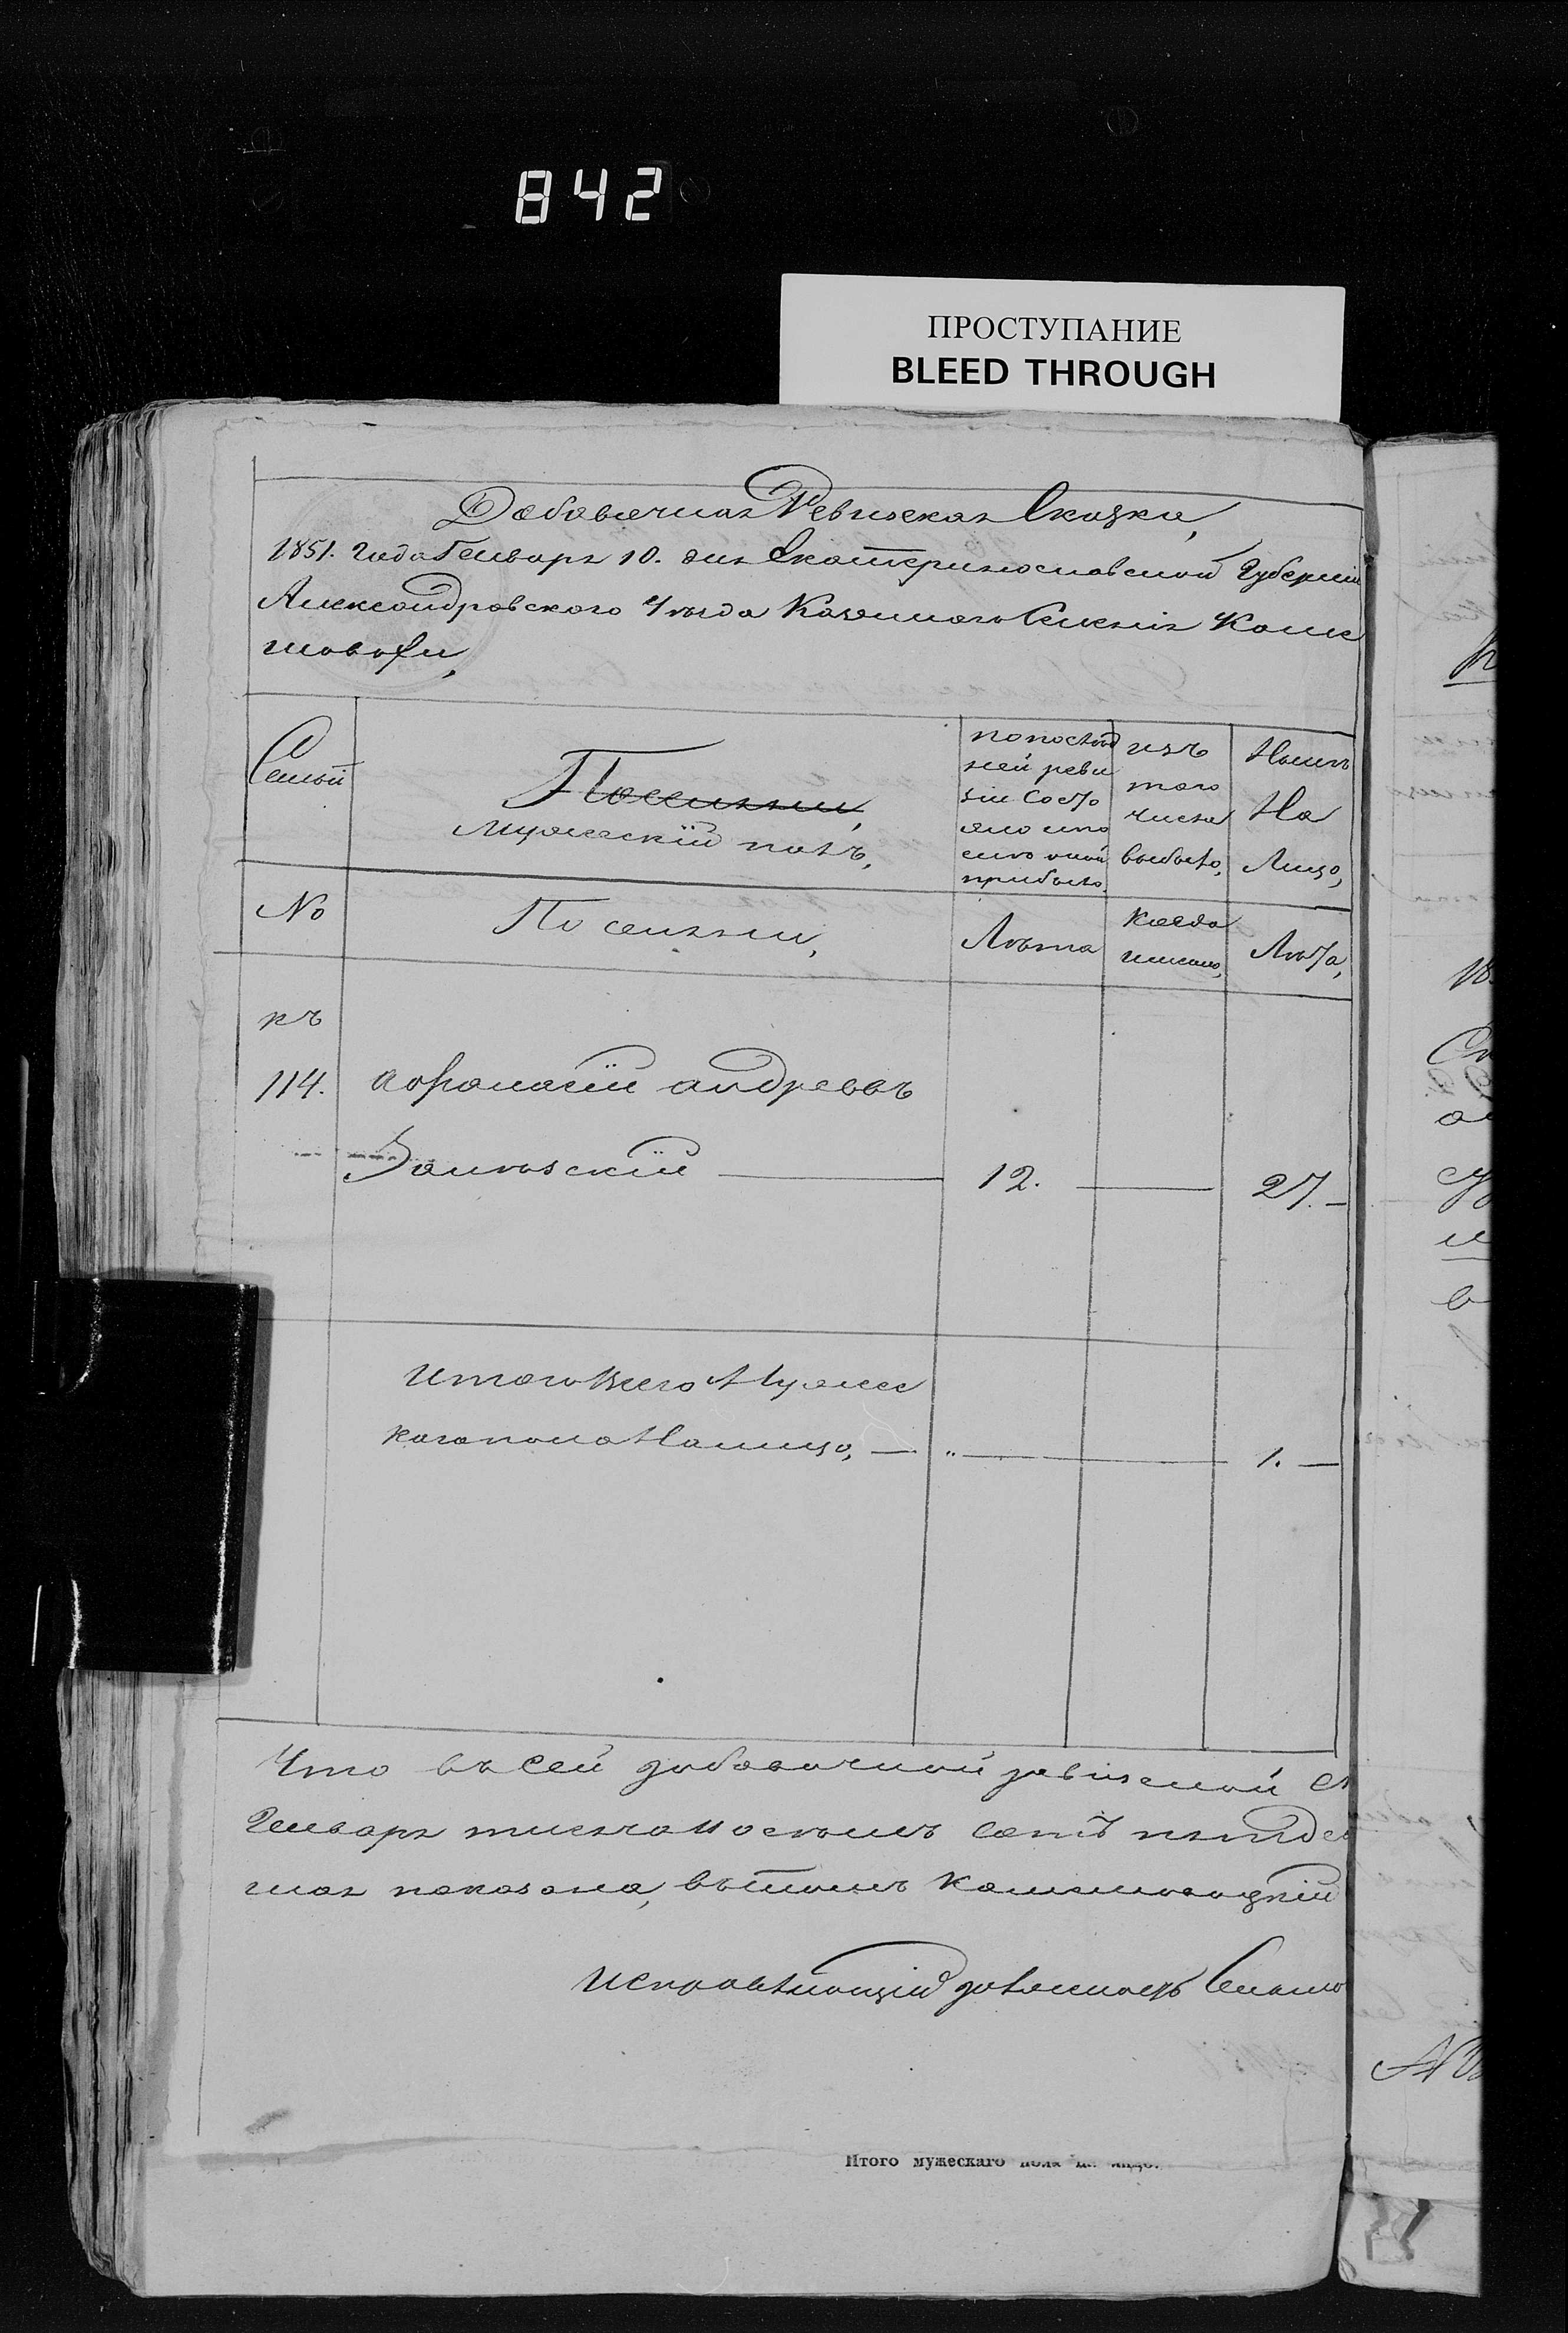 842
ПРОСТУПАНИЕ
BLEED THROUGH
Добавочная Ревизская Сказка,
1851. года Генваря 10. дня Екатеринославской Губерніи
Александровского Уезда Казенного Селенія Каме
новатки,
Семьи
Посемьям,
Мужескій полъ,
по послѣд
ней реви
зіи Состо
яло и по
слѣ оной
прибыло.
изъ
того
числа
выбыло,
Нынѣ
На
Лицо,
№
По семьям,
Лѣта
Когда
именно,
Лѣта,
къ
114. афанасій андреевъ
12. 27.
Итого Всего Мужес
каго пола На лицо, 1.
Что въ сей добавочной ревизской
Генваря тысяча восемъ сотъ пятдес
ная показана, въ томъ
исправляющій должность
Итого мужескаго пола на лицо.